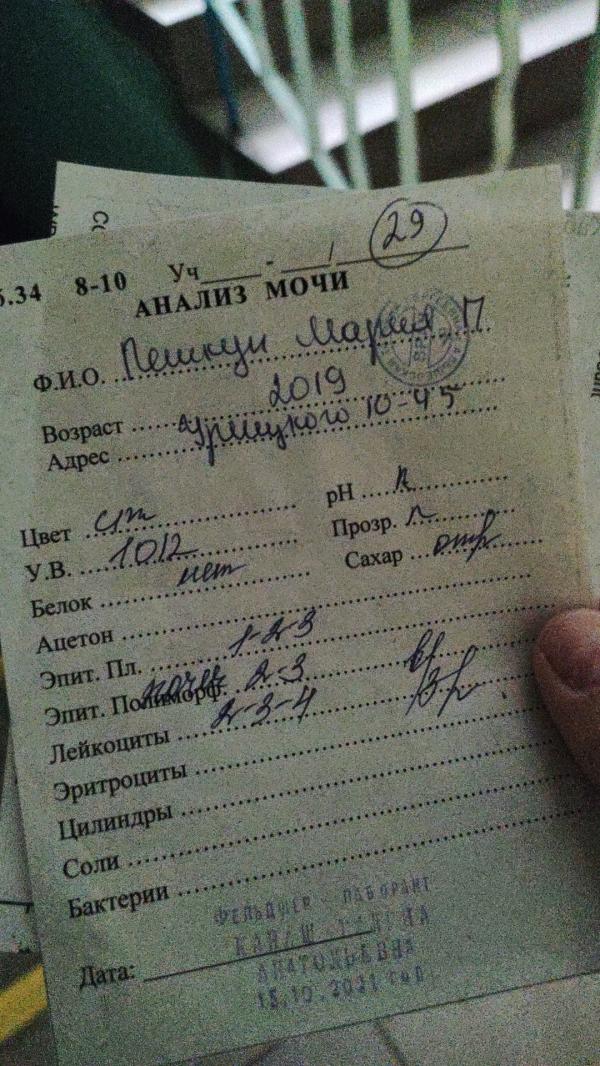 5.34 8-10 Уч ____ - ___/ 29
АНАЛИЗ МОЧИ
Ф.И.О. Пешкун Мария П
Возраст 2019
Адрес Урицкого 10-45
Цвет с/ж pH к
У.В. 1012 Прозр. п
Белок нет Сахар отр
Ацетон
Эпит. Пл. 1-2-3
Эпит. Полиморф. 2-3
Лейкоциты 2-3-4
Эритроциты
Цилиндры
Соли
Бактерии
ФЕЛЬДШЕР - ЛАБОРАНТ
АНАТОЛЬЕВНА
Дата: 15.10.2021 год